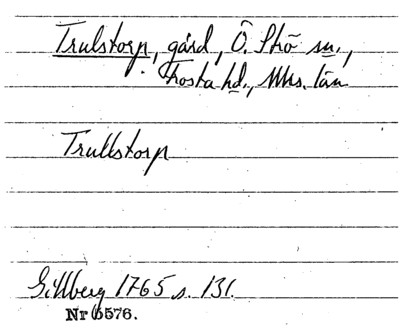 Trulstorp, gård, Ö. Skö sn.,
Frosta hd., Mhs. län
Trullstorp
Gillberg 1765 s. 131.
Nr 6576.